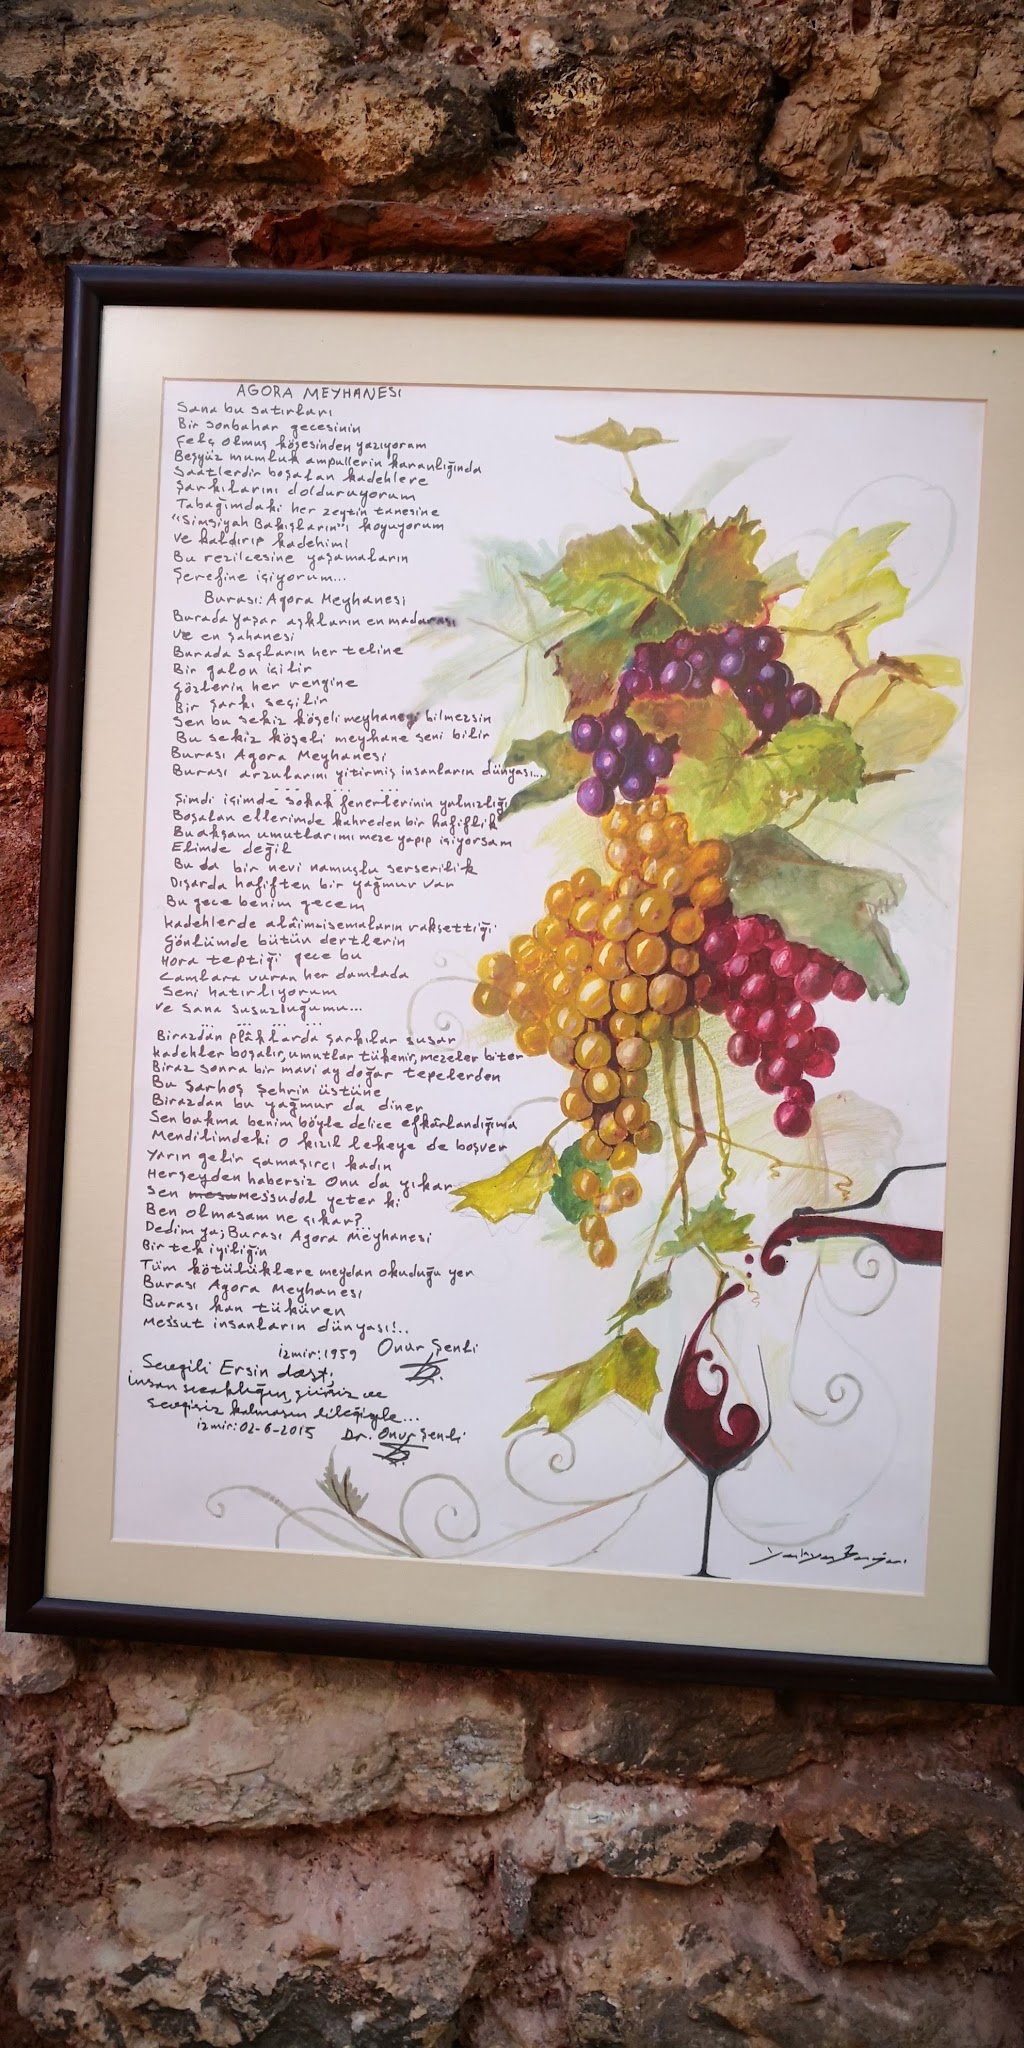 AGORA MEYHANESİ
Sana bu satırları
Bir sonbahar gecesinin
Felç olmuş köşesinden yazıyorum
Beşyüz mumluk ampullerin karanlığında
Saatlerdir boşalan kadehlere
Şarkılarını dolduruyorum
Tabağımdaki her zeytin tanesine
"Simsiyah Bakışların"ı koyuyorum
ve kaldırıp kadehimi
Bu rezilcesine yaşamaların
Şerefine içiyorum...
Burası: Agora Meyhanesi
Burada yaşar aşkların en madarası
Ve en şahanesi
Burada saçların her teline
Bir galon içilir
Gözlerin her rengine
Bir şarkı seçilir
Sen bu sekiz köşeli meyhaneyi bilmezsin
Bu sekiz köşeli meyhane seni bilir
Burası Agora Meyhanesi
Burası arzularını yitirmiş insanların dünyası...
... ... ... ...
Şimdi içimde sokak fenerlerinin yalnızlığı
Boşalan ellerimde kahreden bir hafiflik
Bu akşam umutlarımı meze yapıp içiyorsam
Elimde değil
Bu da bir nevi namuslu serserilik
Dışarda hafiften bir yağmur var
Bu gece benim gecem
kadehlerde alâim-i semaların raksettiği
Gönlümde bütün dertlerin
Hora teptiği gece bu
Camlara vuran her damlada
Seni hatırlıyorum
ve sana susuzluğumu...
... ... ... ...
Birazdan plâklarda şarkılar susar
kadehler boşalır, umutlar tükenir, mezeler biter
Biraz sonra bir mavi ay doğar tepelerden
Bu sarhoş şehrin üstüne
Birazdan bu yağmur da diner
Sen bakma benim böyle delice efkârlandığıma
Mendilimdeki o kızıl lekeye de boşver
Yarın gelir çamaşırcı kadın
Herşeyden habersiz onu da yıkar
Sen mes'ud ol yeter ki
Ben olmasam ne çıkar?
Dedim ya; Burası Agora Meyhanesi
Bir tek iyiliğin
Tüm kötülüklere meydan okuduğu yer
Burası Agora Meyhanesi
Burası kan tüküren
Mes'sut insanların dünyası!..
İzmir: 1959 Onur Şenli
Sevgili Ersin dost,
insan sıcaklığın, şiirsiz ve
sevgisiz kalmasın dileğiyle...
İzmir: 02-6-2015 Dr. Onur Şenli